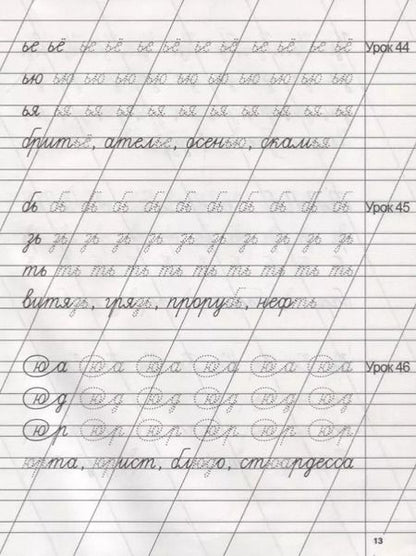 ье ьё ье ьё ье ьё ье ьё ье ьё ье ьё Урок 44
ью ью ью ью ью ью ью ью ью ью ью
ья ья ья ья ья ья ья ья ья ья ья
бритьё, ателье, осенью, скамья
бь бь бь бь бь бь бь бь бь бь бь Урок 45
зь зь зь зь зь зь зь зь зь зь зь
ть ть ть ть ть ть ть ть ть ть ть
витязь, грязь, прорубь, нефть
юа юа юа юа юа юа Урок 46
юд юд юд юд юд юд
юр юр юр юр юр юр
юрта, юрист, блюдо, стюардесса
13